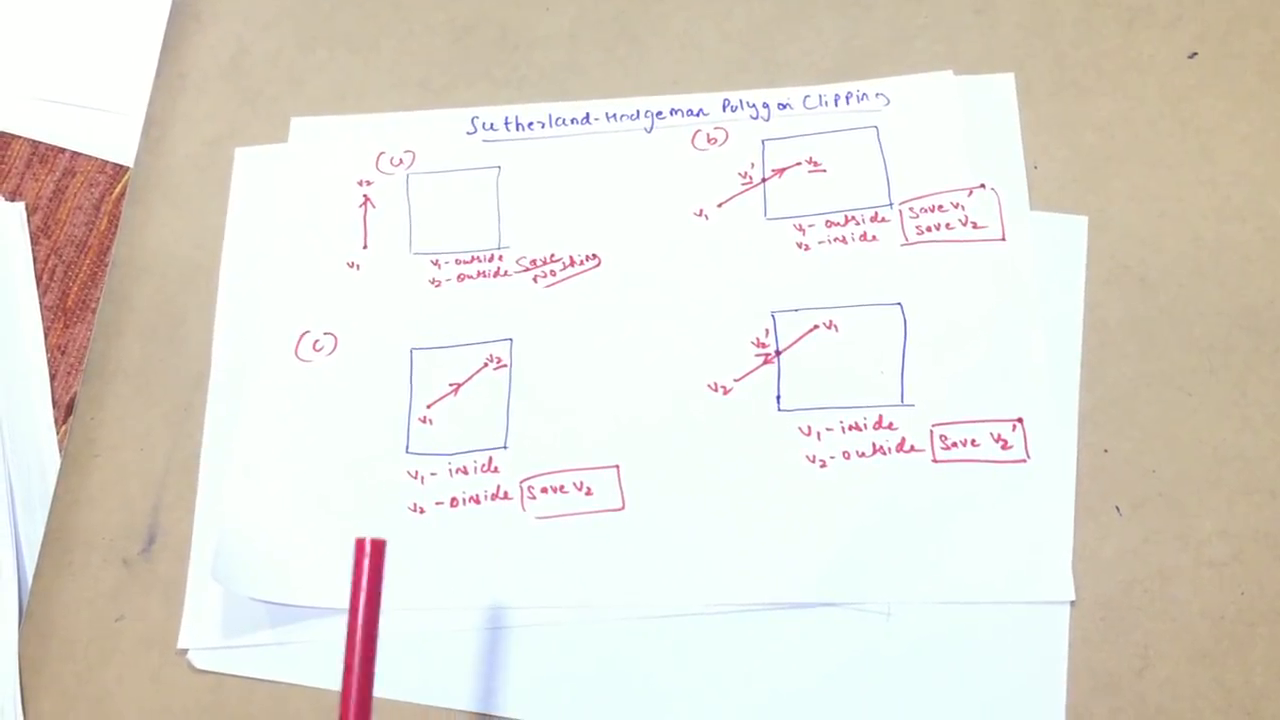 Sutherland-Hodgeman Polygon Clipping
(a)
v2
v1
v1-outside
v2-outside Save
Nothing
(b)
v1'
v2
v1
v1-outside
v2-inside
Save v1'
save v2
(c)
v2
v1
v1-inside
v2-oinside
Save v2
v1
v2'
v2
v1-inside
v2-outside
Save v2'